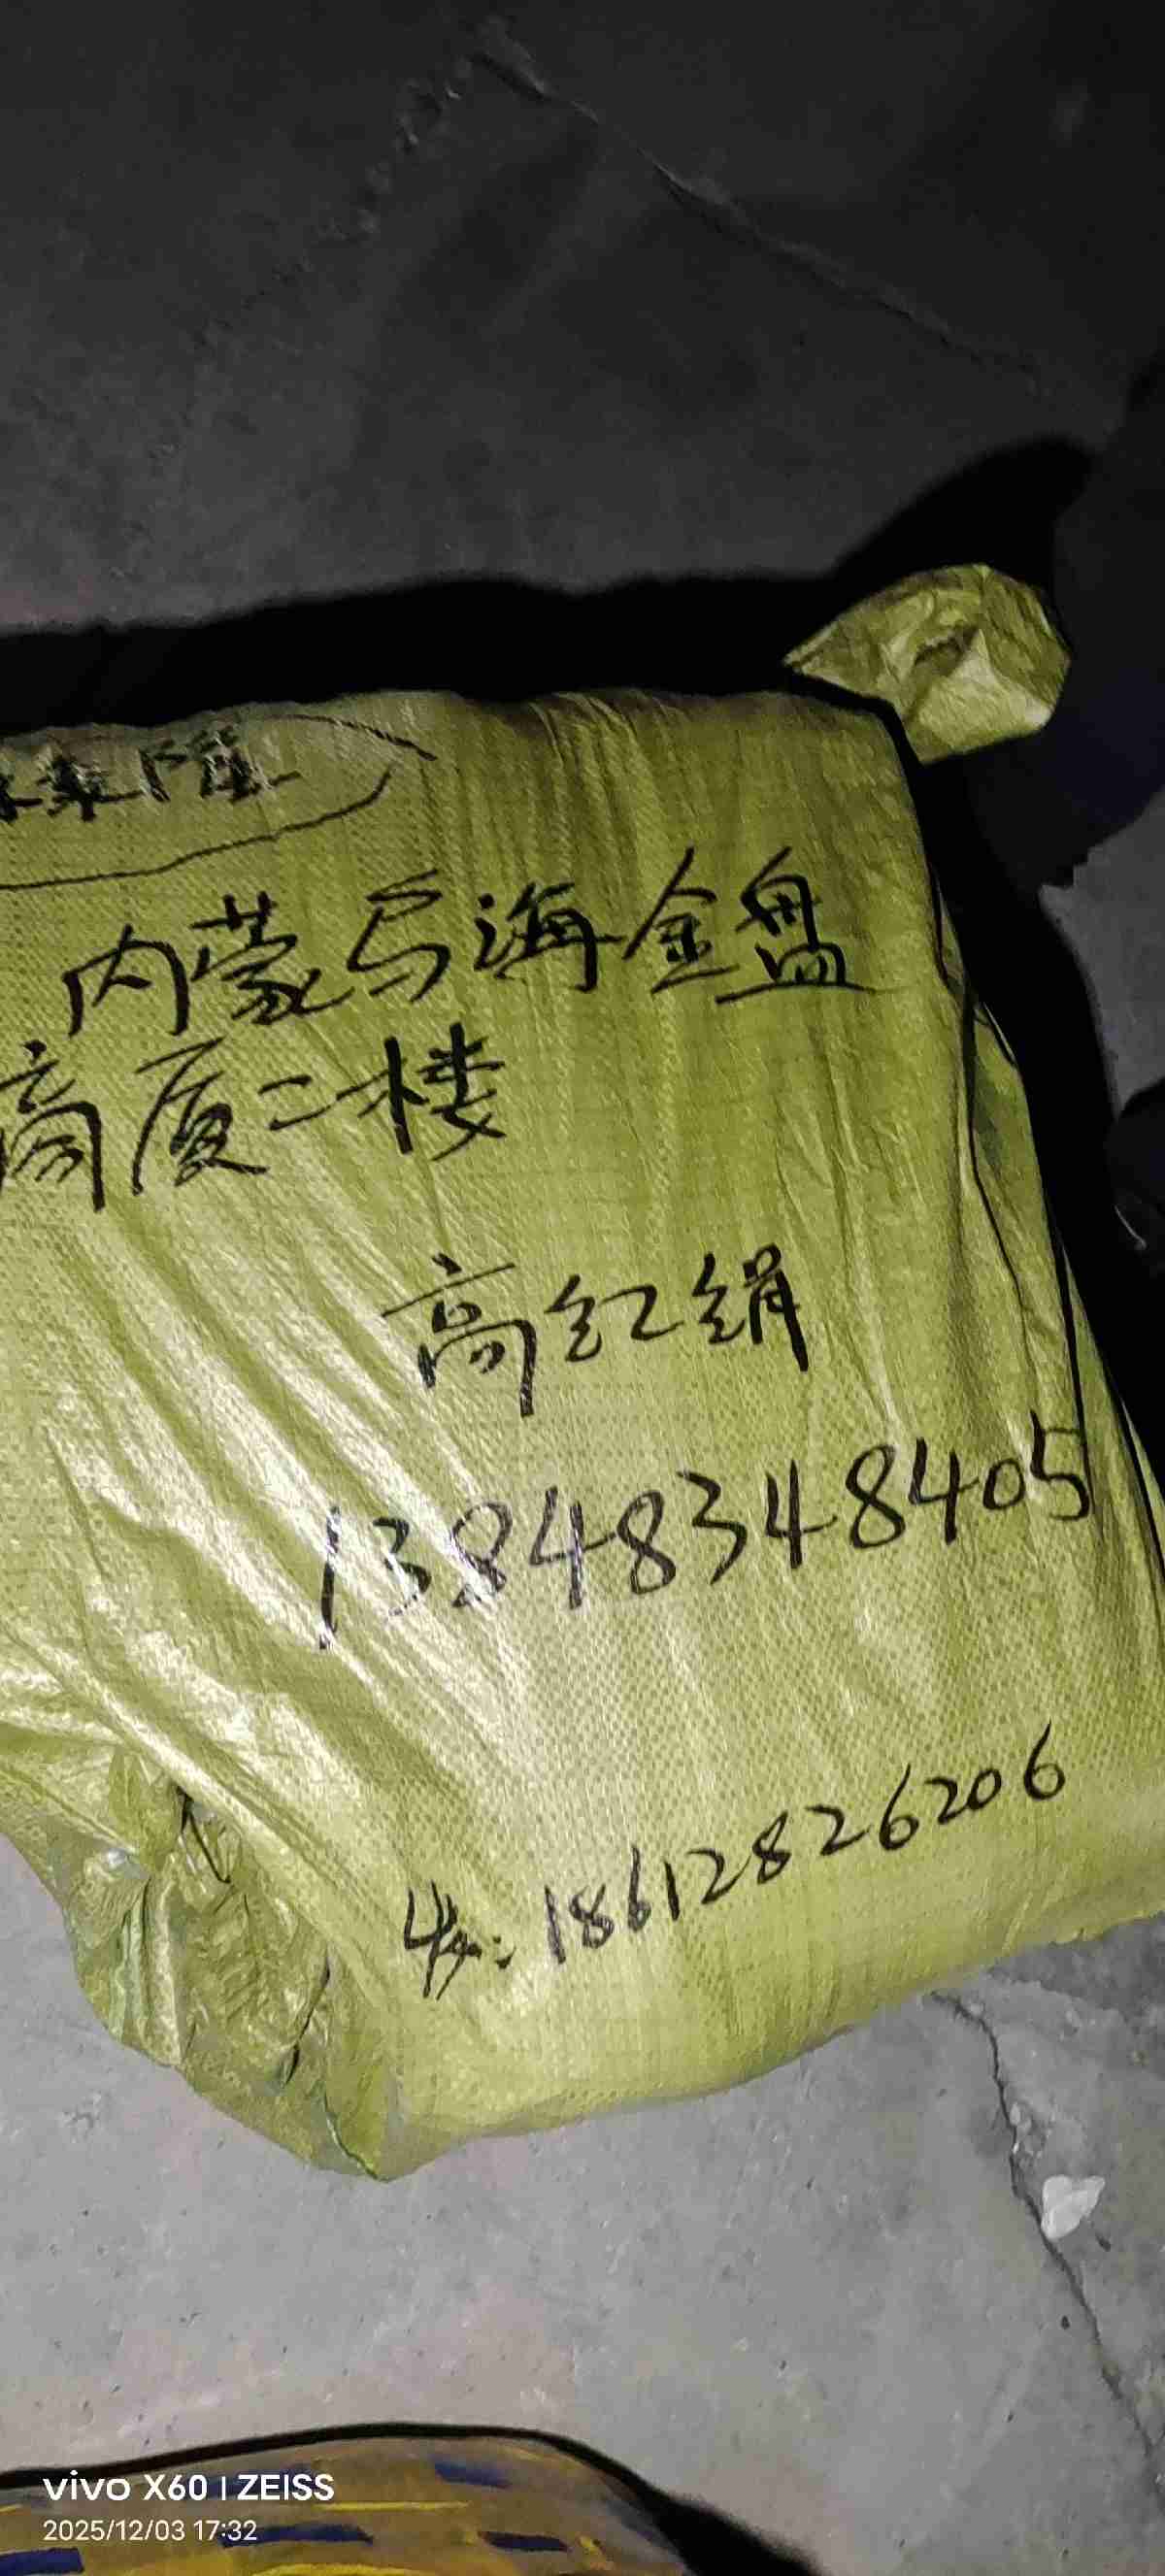 内蒙乌海金盘
商厦二楼
高红绢
13848348405
收:18612826206
vivo X60 | ZEISS
2025/12/03 17:32